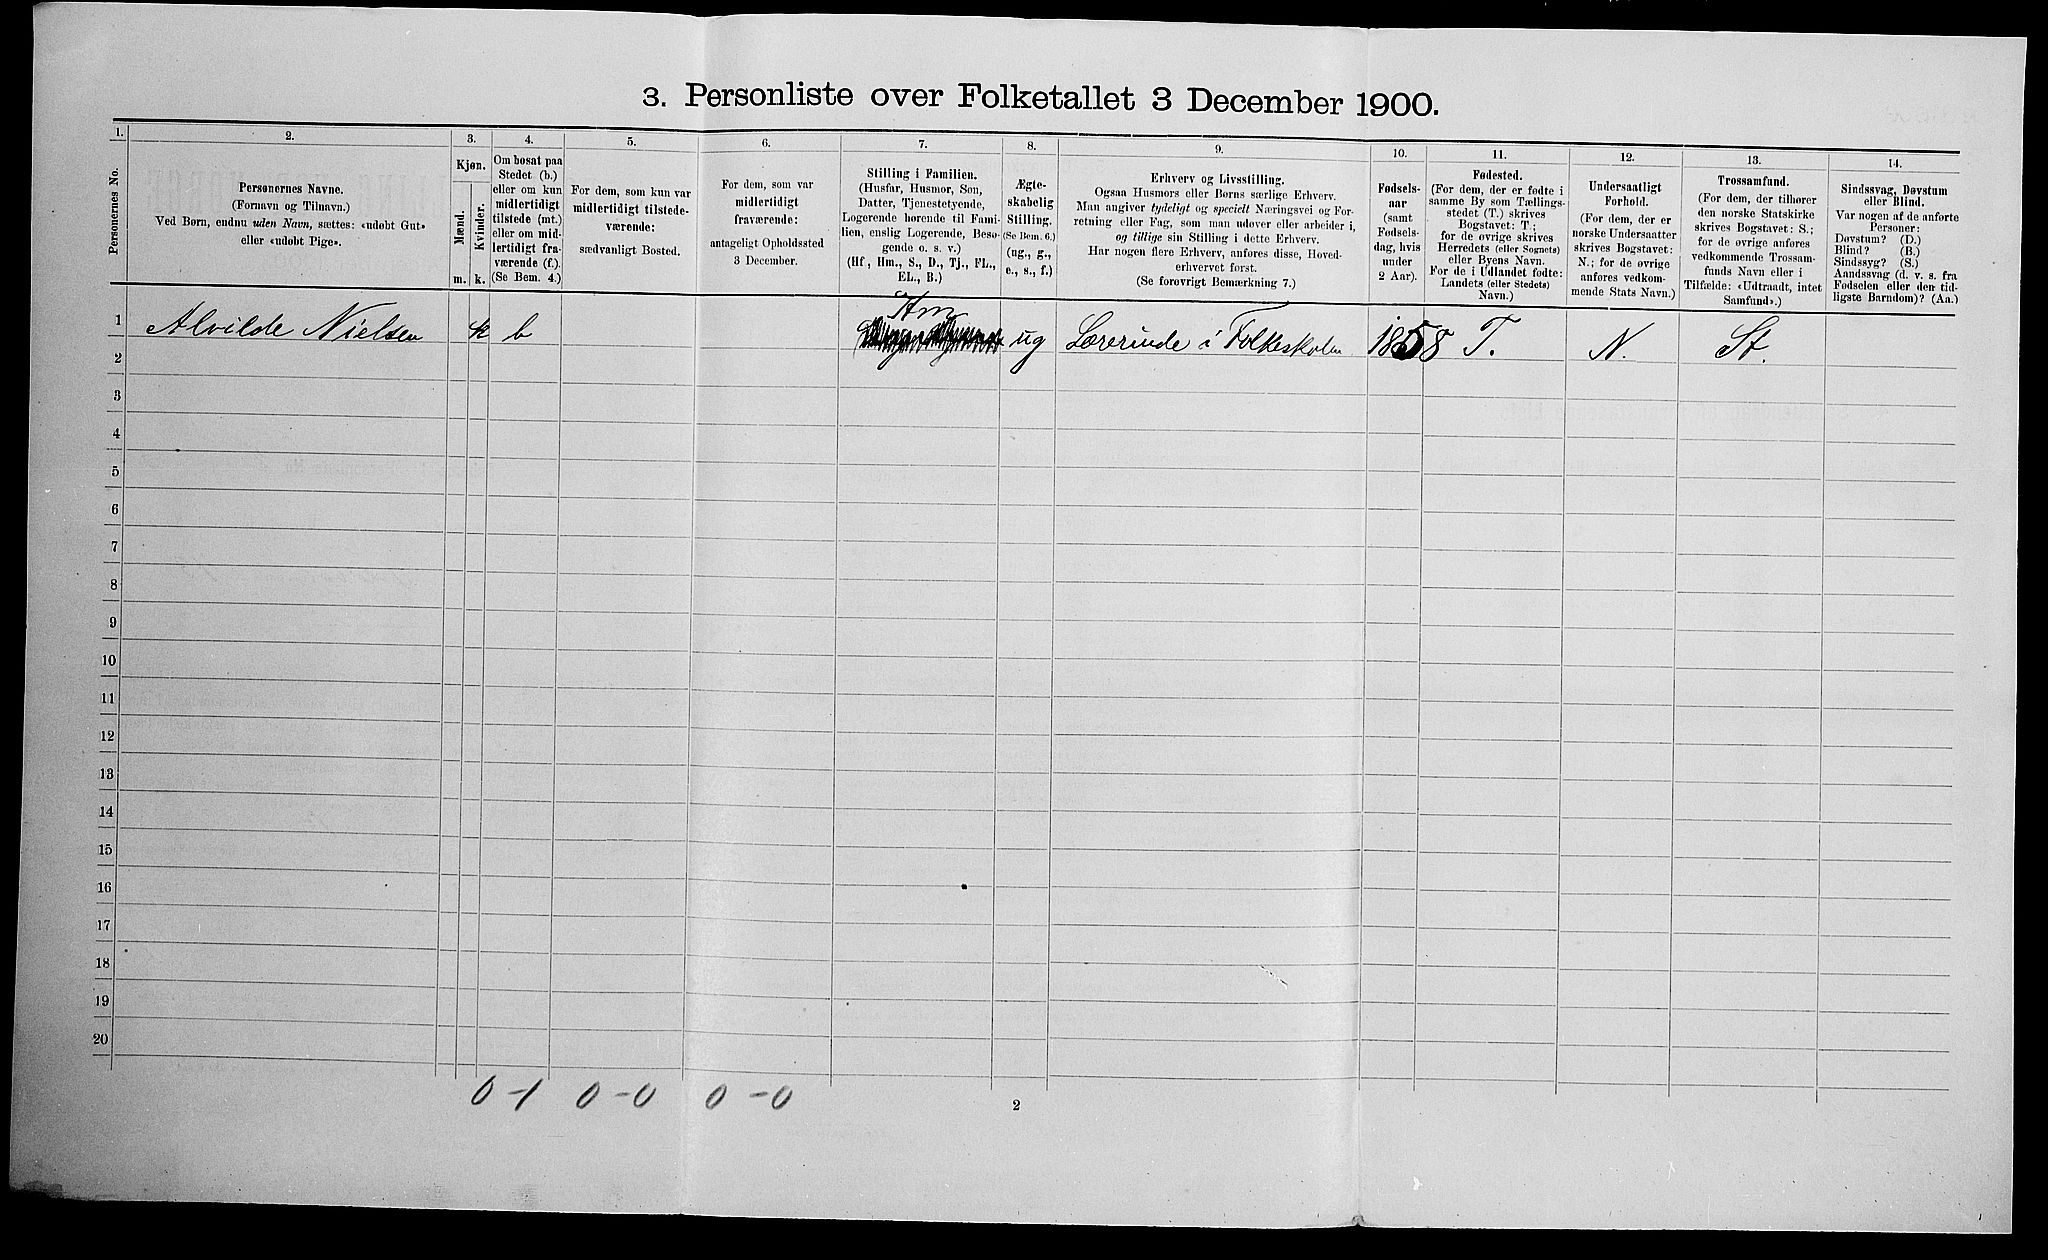 3. Personliste over Folketallet 3 December 1900.
1. 2. 3. 4. 5. 6. 7. 8. 9. 10. 11. 12. 13. 14.
Personernes No.
Personernes Navne.
(Fornavn og Tilnavn.)
Ved Børn, endnu uden Navn, sættes: «udøbt Gut»
eller «udøbt Pige».
Kjøn.
Mænd.
Kvinder.
m. k.
Om bosat paa
Stedet (b.)
eller om kun
midlertidigt
tilstede (mt.)
eller om mid-
lertidigt fra-
værende (f.).
(Se Bem. 4.)
For dem, som kun var
midlertidigt tilstede-
værende:
sædvanligt Bosted.
For dem, som var
midlertidigt
fraværende:
antageligt Opholdssted
3 December.
Stilling i Familien.
(Husfar, Husmor, Søn,
Datter, Tjenestetyende,
Logerende hørende til Fami-
lien, enslig Logerende, Besø-
gende o. s. v.)
(Hf., Hm., S., D., Tj., FL.,
EL., B.)
Ægte-
skabelig
Stilling.
(Se Bem. 6.)
(ug., g.,
e., s., f.)
Erhverv og Livsstilling.
Ogsaa Husmors eller Børns særlige Erhverv.
Man angiver tydeligt og specielt Næringsvei og For-
retning eller Fag, som man udøver eller arbeider i,
og tillige sin Stilling i dette Erhverv.
Har nogen flere Erhverv, anføres disse, Hoved-
erhvervet først.
(Se forøvrigt Bemærkning 7.)
Fødsels-
aar
(samt
Fødsels-
dag, hvis
under
2 Aar).
Fødested.
(For dem, der er fødte i
samme By som Tællings-
stedet (T.) skrives
Bogstavet: T.;
for de øvrige skrives
Herredets (eller Sognets)
eller Byens Navn.
For de i Udlandet fødte:
Landets (eller Stedets)
Navn.)
Undersaatligt
Forhold.
(For dem, der er
norske Undersaatter
skrives Bogstavet:
N.; for de øvrige
anføres vedkom-
mende Stats Navn.)
Trossamfund.
(For dem, der tilhører
den norske Statskirke
skrives Bogstavet: S.;
for de øvrige anføres
vedkommende Trossam-
funds Navn eller i
Tilfælde: «Udtraadt, intet
Samfund».)
Sindssvag, Døvstum
eller Blind.
Var nogen af de anførte
Personer:
Døvstum? (D.)
Blind? (B.)
Sindssyg? (S.)
Aandssvag (d. v. s. fra
Fødselen eller den tid-
ligste Barndom)? (Aa.)
1 Alvilde Nielsen k b Hm ug Lærerinde i Folkeskolen 1858 T. N. St.
2
3
4
5
6
7
8
9
10
11
12
13
14
15
16
17
18
19
20
0-1 0-0 0-0
2